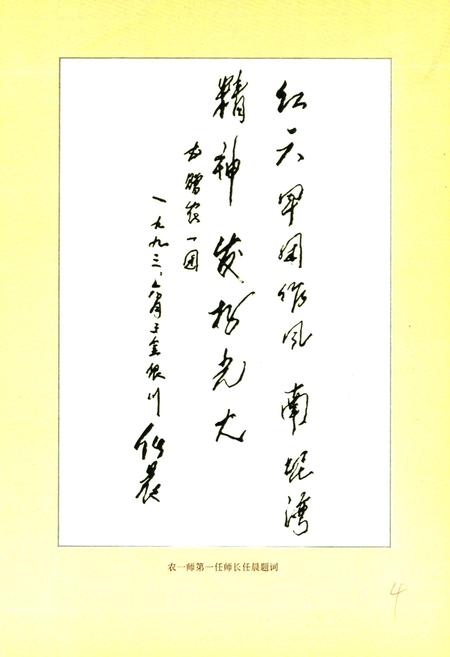 红六军团作风 南泥湾
精神发扬光大
书赠农一团
一九九三、六月于金银川 任晨
农一师第一任师长任晨题词
4